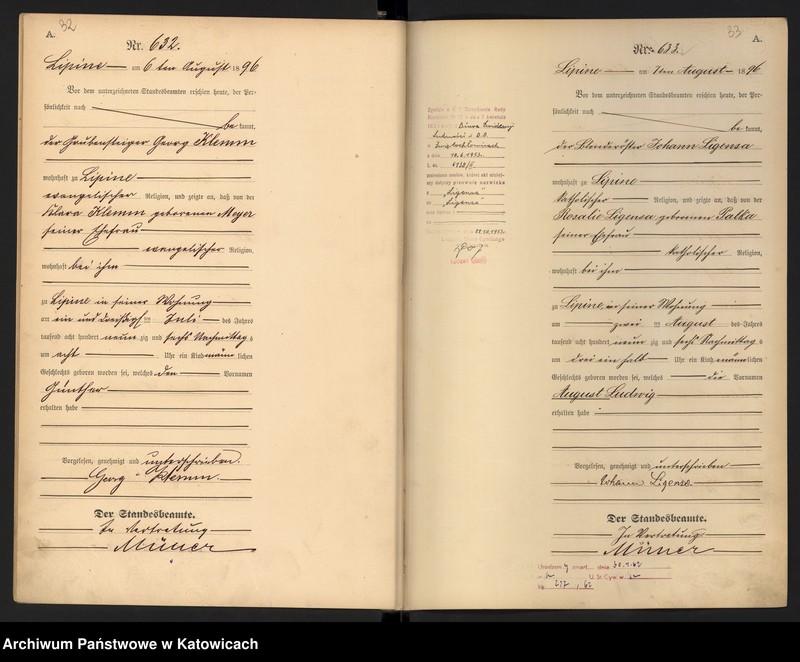 32
A.
Nr. 632.
Lipine am 6 ten August 1896
Vor dem unterzeichneten Standesbeamten erschien heute, der Per-
sönlichkeit nach
be kannt,
der Grubensteiger Georg Klemm
wohnhaft zu Lipine
evangelischer Religion, und zeigte an, daß von der
Klara Klemm geborenen Meyer
seiner Ehefrau
evangelischer Religion,
wohnhaft bei ihm
zu Lipine in seiner Wohnung
am ein und dreißigsten Juli des Jahres
tausend acht hundert neun zig und sechs Nachmittags
um acht Uhr ein Kind männ lichen
Geschlechts geboren worden sei, welches den Vornamen
Günther
erhalten habe
Vorgelesen, genehmigt und unterschrieben.
Georg Klemm.
Der Standesbeamte.
In Vertretung
33
A.
Nr. 633.
Lipine am 7ten August 1896
Vor dem unterzeichneten Standesbeamten erschien heute, der Per-
sönlichkeit nach
be kannt,
der Blenderöster Johann Ligensa
wohnhaft zu Lipine
katholischer Religion, und zeigte an, daß von der
Rosalie Ligensa geborenen Palka
seiner Ehefrau
katholischer Religion,
wohnhaft bei ihm
zu Lipine in seiner Wohnung
am zwei ten August des Jahres
tausend acht hundert neun zig und sechs Nachmittags
um drei ein halb Uhr ein Kind männ lichen
Geschlechts geboren worden sei, welches die Vornamen
August Ludwig
erhalten habe
Vorgelesen, genehmigt und unterschrieben
Johann Ligensa
Der Standesbeamte.
In Vertretung
Archiwum Państwowe w Katowicach